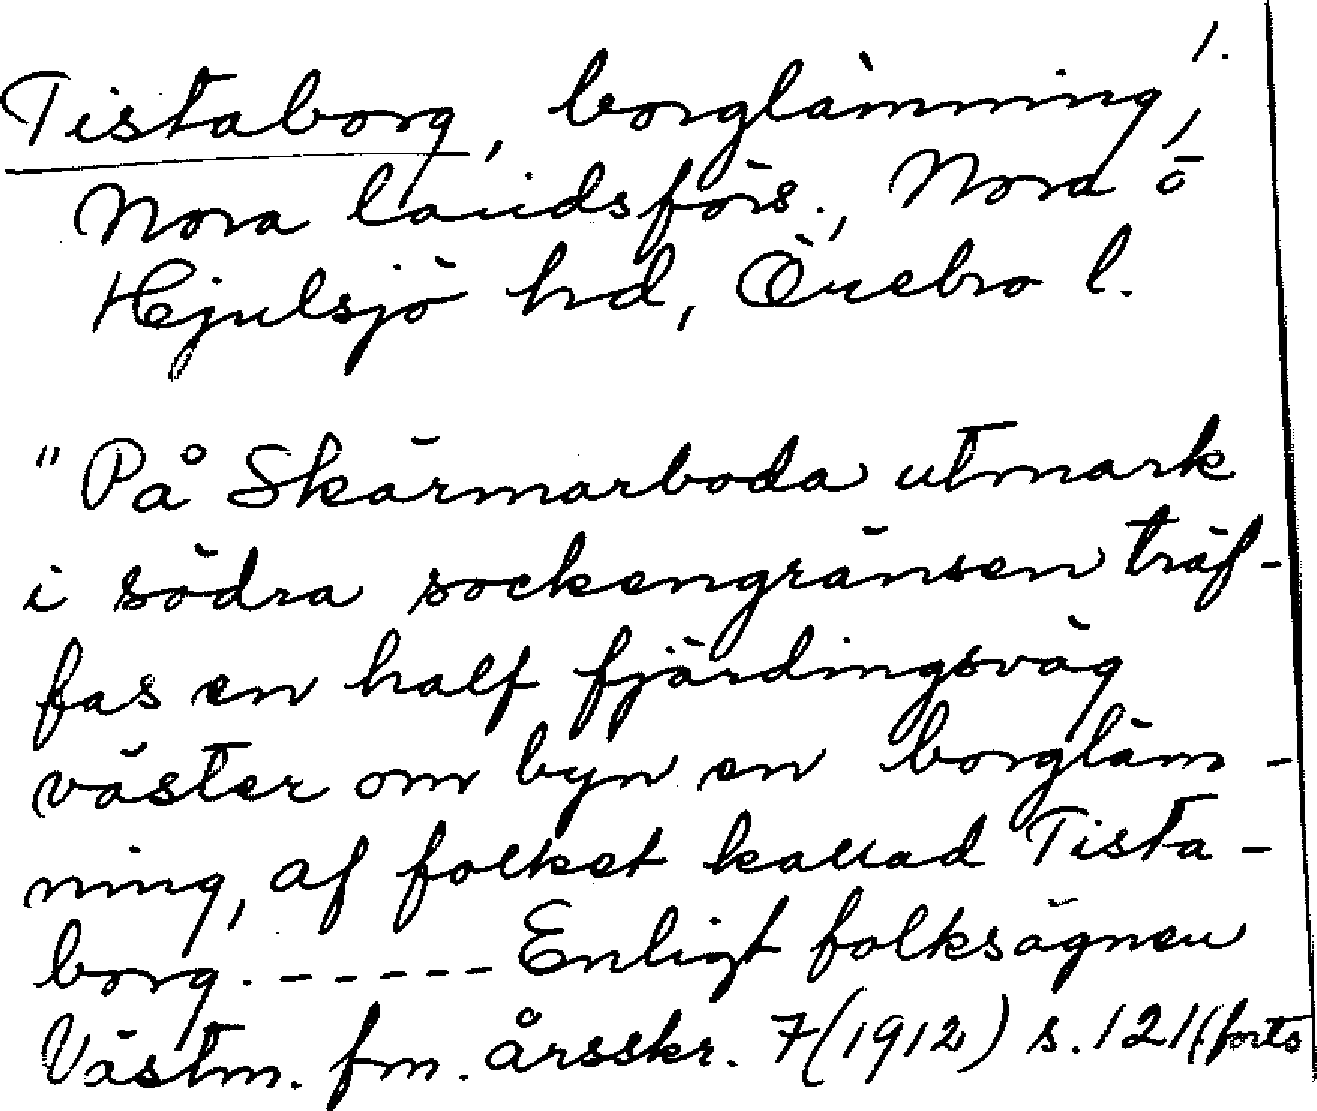 1.
Tistaborg, borglämning,
Nora landsförs., Nora o
Hjulsjö hd, Örebro l.
"På Skärmarboda utmark
i södra sockengränsen träf-
fas en half fjärdingsväg
väster om byn en borgläm-
ning, af folket kallad Tista-
borg. ----- Enligt folksägnen
Västm. fm. årsskr. 7(1912) s. 121 (forts